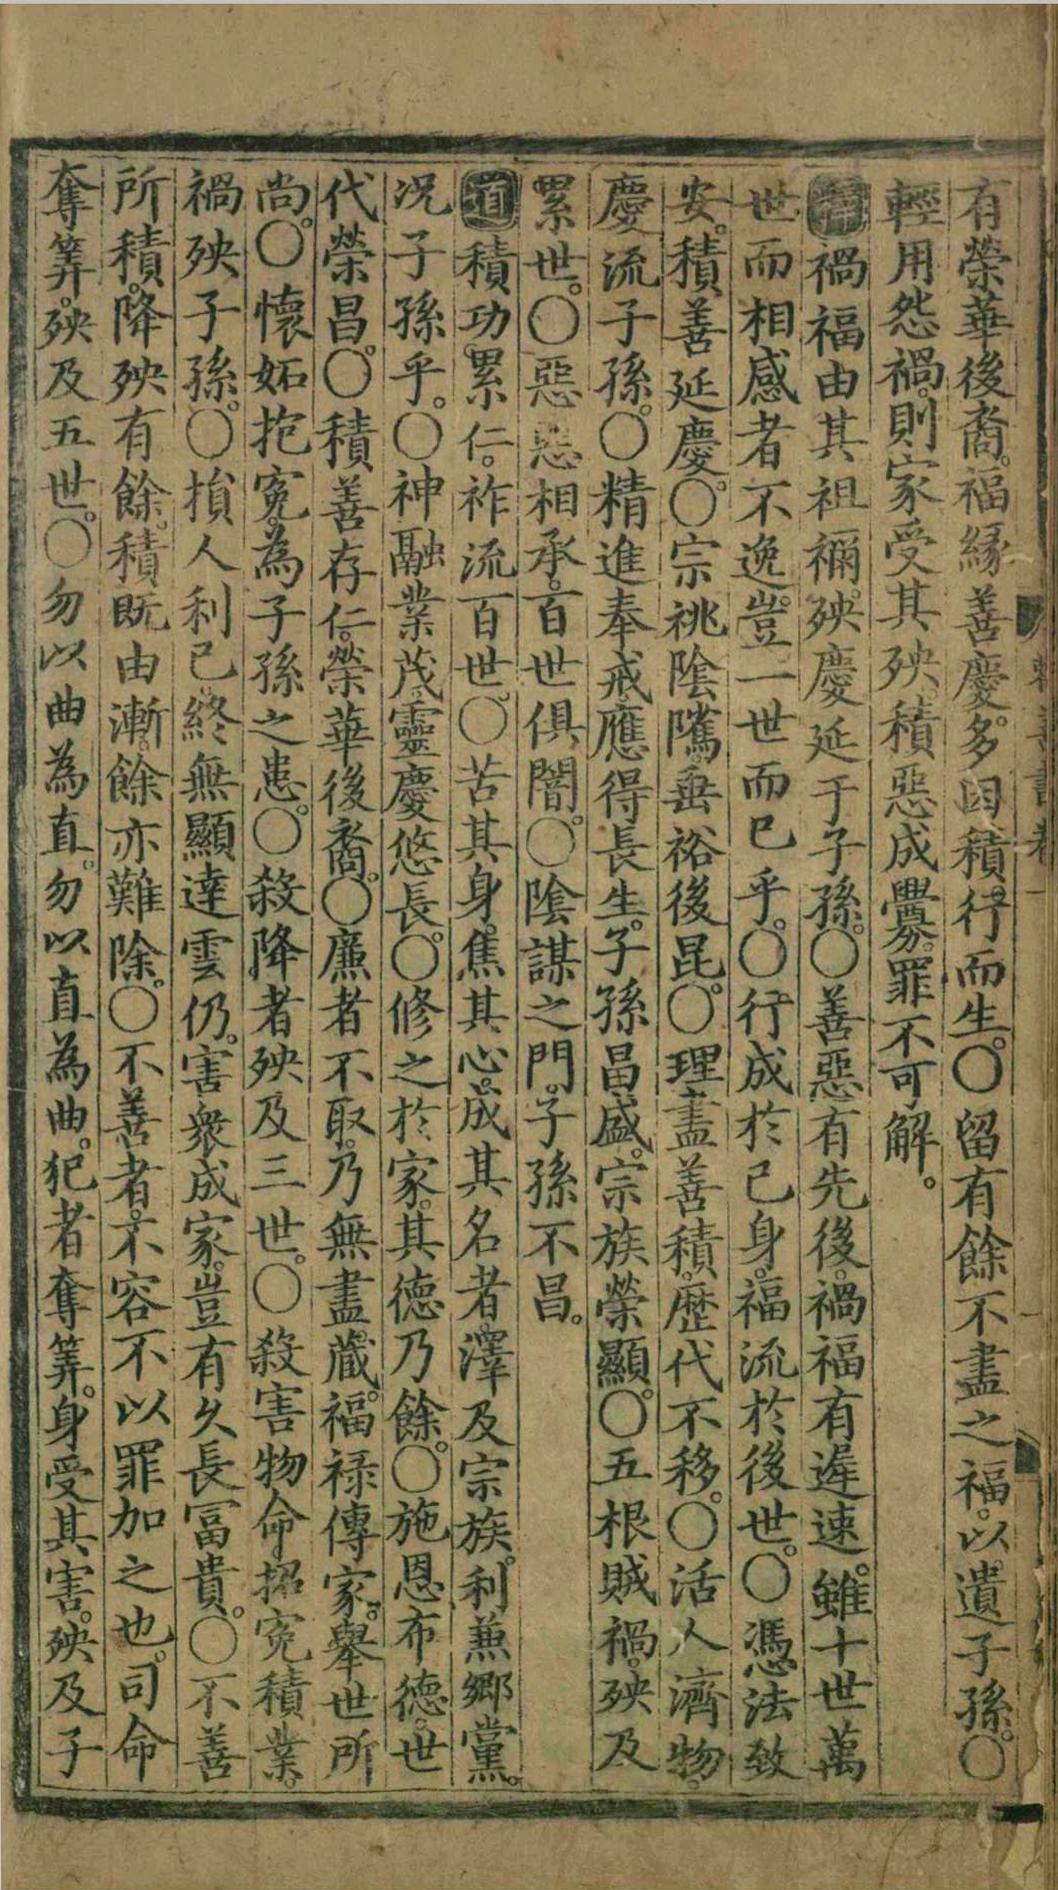 有榮華後裔。福縁善慶。多因積行而生。〇留有餘不盡之福。以遺子孫。〇
輕用怨禍。則家受其殃。積惡成釁。罪不可解。
禍福由其祖禰。殃慶延于子孫。〇善惡有先後。禍福有遲速。雖十世萬
世而相感者不逸。豈一世而已乎。〇行成於己身。福流於後世。〇馮法致
安。積善延慶。〇宗祧陰隲。垂裕後昆。〇理盡善積。歷代不移。〇活人濟物。
慶流子孫。〇精進奉戒應得長生。子孫昌盛。宗族榮顯。〇五根賊禍。殃及
累世。〇惡惡相承。百世俱闇。〇陰謀之門。子孫不昌。
積功。累仁。祚流百世。〇苦其身。焦其心。成其名者。澤及宗族。利兼鄉黨。
况子孫乎。〇神融業茂。靈慶悠長。〇修之於家。其德乃餘。〇施恩布德。世
代榮昌。〇積善存仁。榮華後裔。〇廉者不取。乃無盡藏。福禄傳家。舉世所
尚。〇懷妬抱寃。為子孫之患。〇殺降者殃及三世。〇殺害物命招寃積業。
禍殃子孫。〇損人利己。終無顯達雲仍。害衆成家。豈有久長冨貴。〇不善
所積。降殃有餘。積既由漸。餘亦難除。〇不善者。不容不以罪加之也。司命
奪筭。殃及五世。〇勿以曲為直。勿以直為曲。犯者奪筭。身受其害。殃及子